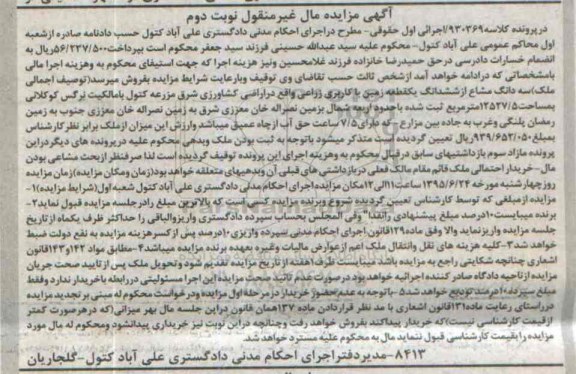 آگهی مزایده مال غیرمنقول نوبت دوم
در پرونده کلاسه ۹۳۰۳۶۹/اجرائی اول حقوقی- مطرح دراجرای احکام مدنی دادگستری علی آباد کتول حسب دادنامه صادره ازشعبه
اول محاکم عمومی علی آباد کتول- محکوم علیه سید عبدالله حسینی فرزند سید جعفر محکوم است بپرداخت ۵۶/۲۲۷/۵۰۰ریال به
انضمام خسارات دادرسی درحق حمیدرضا خانزاده فرزند غلامحسین ونیز هزینه اجرا که جهت استیفای محکوم به وهزینه اجرا مالی
بامشخصاتی که درادامه خواهد آمد ازشخص ثالث حسب تقاضای وی توقیف وبارعایت شرایط مزایده بفروش میرسد(توصیف اجمالی
ملک)سه دانگ مشاع ازششدانگ یکقطعه زمین با کاربری زراعی واقع دراراضی کشاورزی شرق مزرعه کتول بامالکیت نرگس کوکلانی
بمساحت ۱۲۵۲۷/۵مترمربع ثبت شده باحدود اربعه شمال بزمین نصراله خان معززی شرق به زمین نصراله خان معززی جنوب به زمین
رمضان پلنگی وغرب به جاده بین مزارع- که دارای ۷/۵ ساعت حق آب ازچاه عمیق میباشد وارزش این میزان ازملک برابر نظر کارشناس
بمبلغ ۹۳۹/۶۵۳/۰۵۰ریال تعیین گردیده است متذکر میشود باتوجه به ثبت بودن ملک وبدهی محکوم علیه در پرونده های دیگر دراین
پرونده مازاد سوم بازداشتیهای سابق درقبال محکوم به وهزینه اجرای این پرونده توقیف گردیده است لذا صرفنظر ازبحث مشاعی بودن
مال- خریدار احتمالی ملک قائم مقام مالک فعلی در بازداشتی های قبلی آن وبدهیهای متعلقه خواهد بود(زمان ومکان مزایده)زمان مزایده
روز چهارشنبه مورخه ۱۳۹۵/۶/۲۴ ساعت ۱۱الی ۱۲ مکان مزایده اجرای احکام مدنی دادگستری علی آباد کتول شعبه اول(شرایط مزایده)۱-
مزایده ازمبلغی که توسط کارشناس تعیین گردیده شروع وبرنده مزایده کسی است که بالاترین مبلغ رادرجلسه مزایده قبول نماید۲-
برنده میبایست ۱۰درصد مبلغ پیشنهادی رانقدا" وفی المجلس بحساب سپرده دادگستری واریزوالباقی را حداکثر ظرف یکماه ازتاریخ
جلسه مزایده واریزنماید والا وفق ماده ۱۲۹قانون اجرای احکام مدنی سپرده واریزی ۱۰درصد پس از کسرهزینه مزایده به نفع دولت ضبط
خواهد شد۳-کلیه هزینه های نقل وانتقال ملک اعم ازعوارض مالیات وغیره بعهده برنده مزایده میباشد۴-مطابق مواد ۱۴۲و۱۴۳قانون
اشعاری چنانچه شکایتی راجع به مزایده باشد میبایست ظرف ۱هفته ازتاریخ مزایده تقدیم شود وتحویل ملک پس ازتایید صحت جریان
مزایده ازناحیه دادگاه صادر کننده اجرائیه خواهد بود درصورت عدم تائید صحت مزایده این اجرا مسئولیتی دررابطه باخریدار ندارد وفقط
مبلغ سپرده ۱۰درصد تودیع خواهد شد۵-باتوجه به عدم حضور خریدار در مرحله اول مزایده ودرخواست محکوم له مبنی بر تجدید مزایده
درراستای رعایت ماده ۱۳۱قانون اشعاری با مد نظر قراردادن ماده ۱۳۷همان قانون دراین جلسه مال بهر میزانی(که درهر صورت کمتر
ازقیمت کارشناسی نیست)که خریدار پیداکند بفروش خواهد رفت وچنانچه دراین نوبت نیز خریداری پیدانشود ومحکوم له مال مورد
مزایده را بقیمت کارشناسی قبول ننماید مال به محکوم علیه مسترد خواهد شد.
۸۴۱۳-مدیردفتراجرای احکام مدنی دادگستری علی آباد کتول-گلجاریان